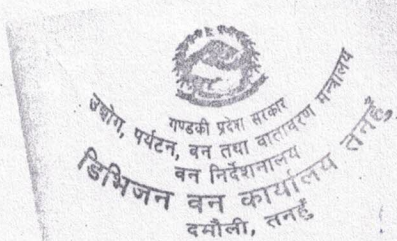 गण्डकी प्रदेश सरकार
उद्योग, पर्यटन, वन तथा वातावरण मन्त्रालय
वन निर्देशनालय
डिभिजन वन कार्यालय तनहुँ
दमौली, तनहुँ